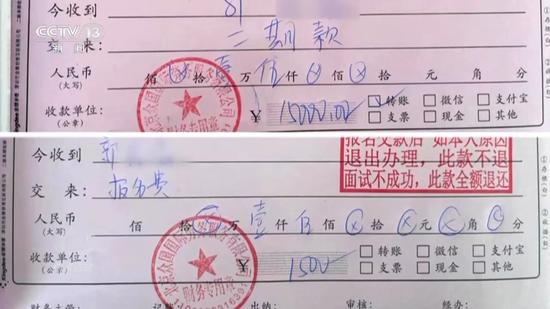 CCTV 13
新闻
今收到
交 来: 二期款
人民币
(大写) 佰 ⊗ 拾 壹 万 伍 仟 ⊗ 佰 ⊗ 拾 元 角 分
收款单位:
(公章) ¥ 15000.00 ☑ 转账 □ 微信 □ 支付宝
□ 支票 □ 现金 □ 其他
财务专用章
今收到 郭
报名交款后 如本人原因
退出办理,此款不退
面试不成功,此款全额退还
交 来: 报名费
人民币
(大写) 佰 拾 ⊗ 万 壹 仟 伍 佰 ⊗ 拾 ⊗ 元 ⊗ 角 ⊗ 分
收款单位:
(公章) ¥ 1500 □ 转账 □ 微信 □ 支付宝
□ 支票 □ 现金 □ 其他
财务专用章
出纳: 审核: 经办: